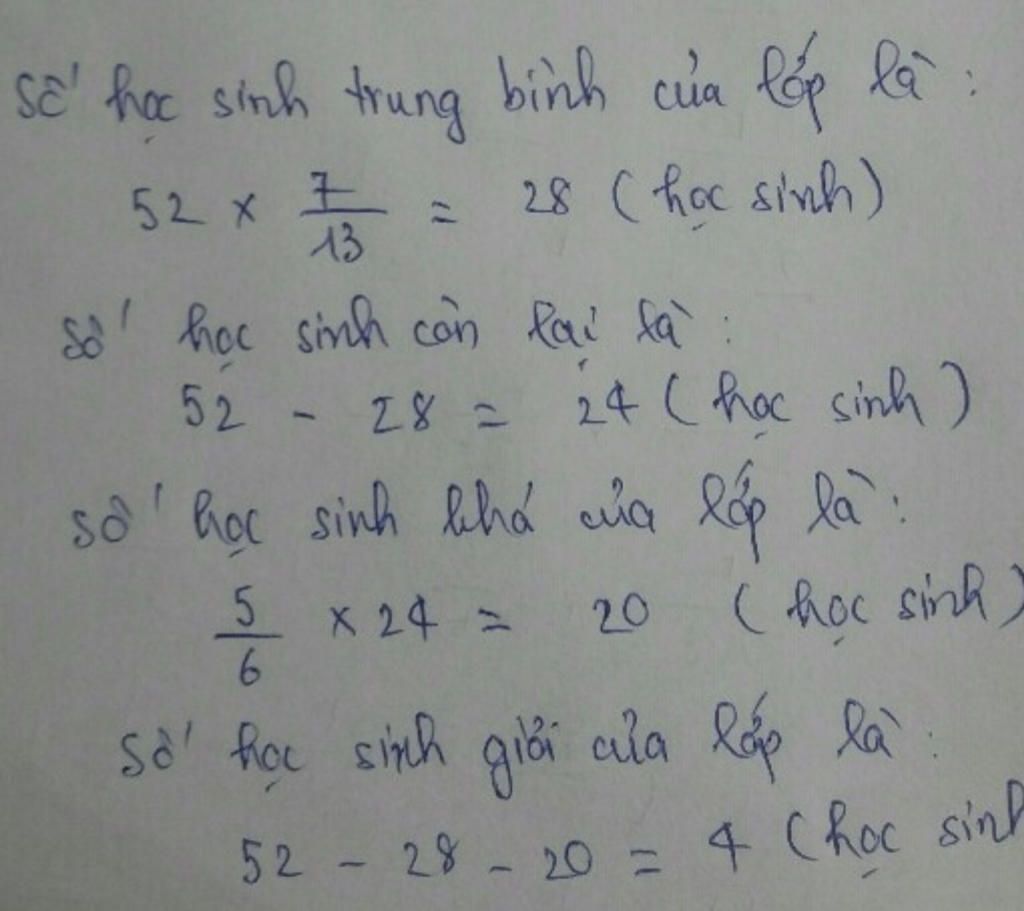 Số học sinh trung bình của lớp là:
52 x 7/13 = 28 (học sinh)
số học sinh còn lại là:
52 - 28 = 24 (học sinh)
số học sinh khá của lớp là:
5/6 x 24 = 20 (học sinh)
Số học sinh giỏi của lớp là:
52 - 28 - 20 = 4 (học sinh